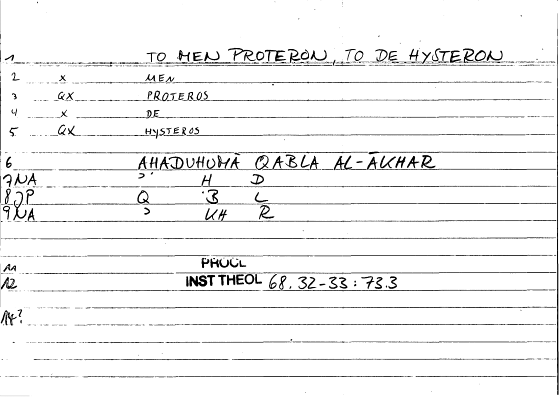 1 TO MEN PROTERON, TO DE HYSTERON
2 X MEN
3 QX PROTEROS
4 X DE
5 QX HYSTEROS
6 AHADUHUMĀ QABLA AL-ĀKHAR
7 NA ' H D
8 JP Q B L
9 NA ' KH R
11 PROCL
12 INST THEOL 68.32-33:73.3
14?